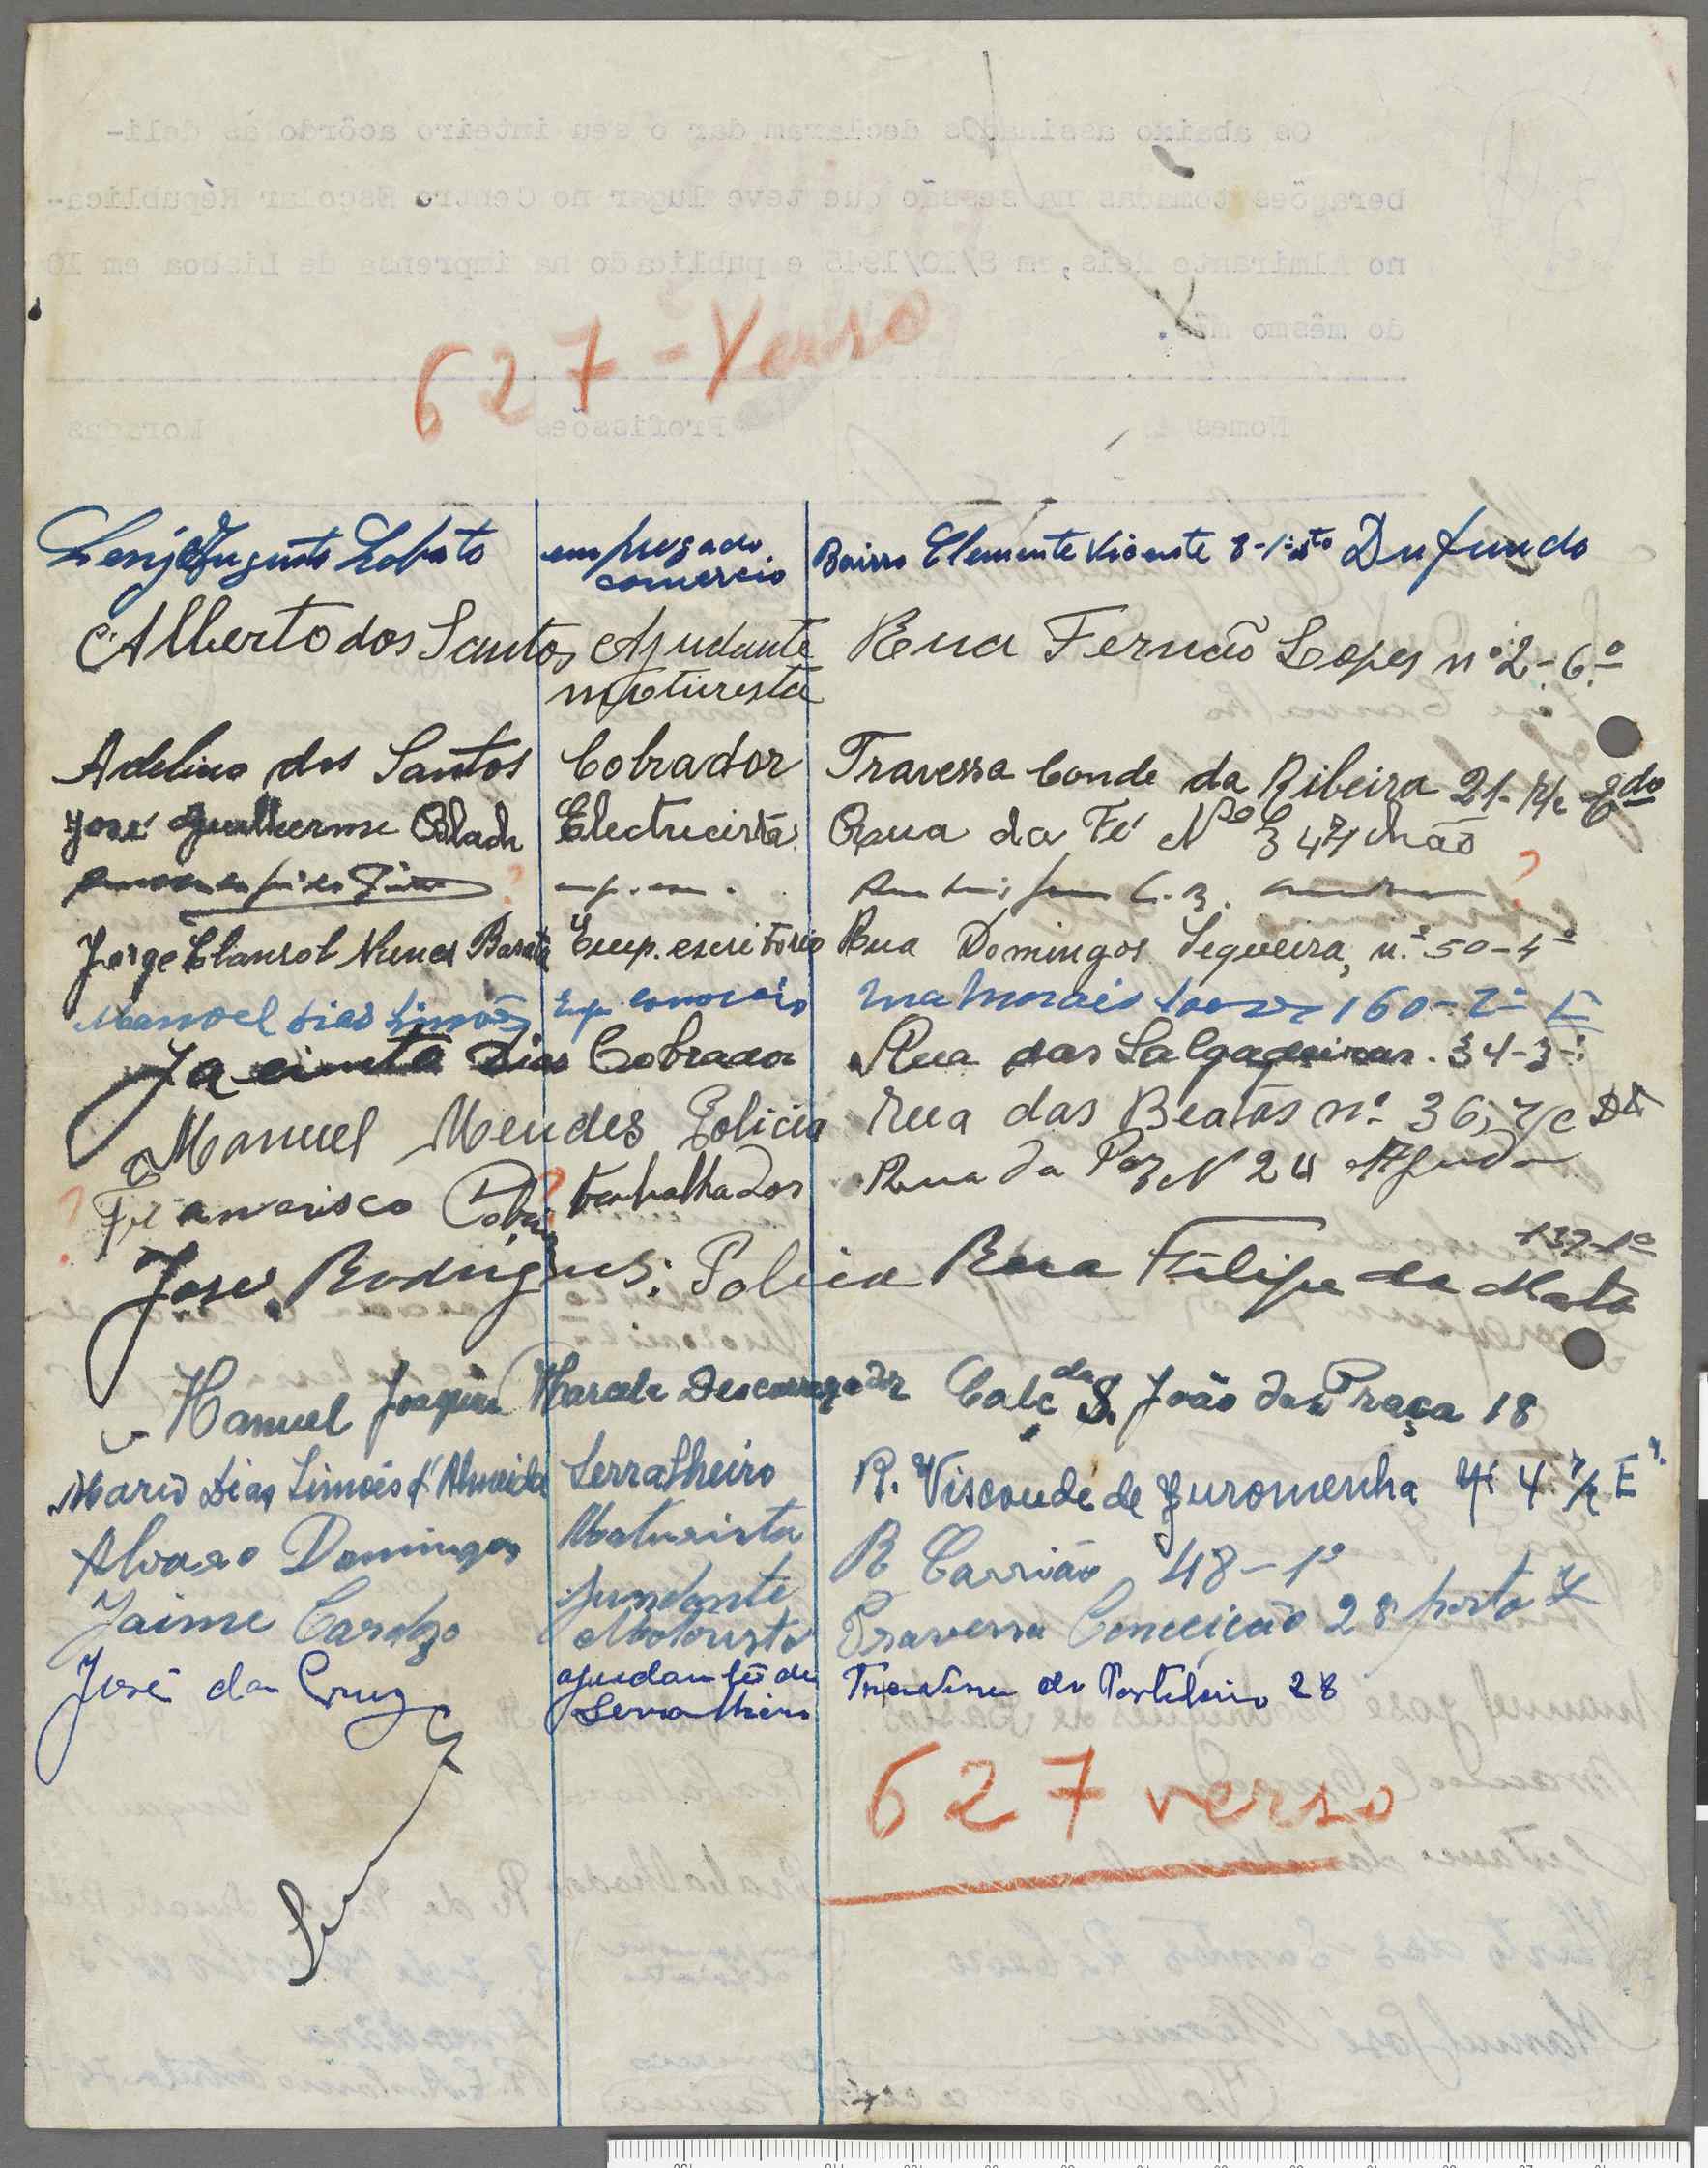 627-Verso
Augusto Lobato empregado comercio Bairro Clemente Vicente 8-1º Dto Dafundo
Alberto dos Santos Ajudante moturista Rua Fernão Lopes nº 2-6.º
Adelino dos Santos Cobrador Travessa Conde da Ribeira 21- R/c Esqdo
José Guilherme Electricista Rua da Fé Nº 47
Jorge Clansol Nunes Barata Emp. escritorio Rua Domingos Sequeira, n.º 50-4º
Manoel Dias Simões Emp comercio rua Morais Soares 160-2º E
Jacinto Dias Cobrador Rua das Salgadeiras. 34-3º
Manuel Mendes Policia Rua das Beatas nº 36, r/c Dt
Francisco trabalhador Rua da Paz Nº 24 Ajuda
José Rodrigues. Policia Rua Filipe da Mata 137-1º
Manuel Joaquim Descarregador Calçda S. João da Praça 18
Mario Dias Simões d'Almeida Serralheiro R. Visconde de Juromenha Nº 4 r/c E
Alvaro Domingos Moturista R Carrião 48-1º
Jaime Cardozo Ajundante Motorista Travessa Conceição 28 porta
José da Cruz ajudante de Serralheiro Travessa do 28
627 verso